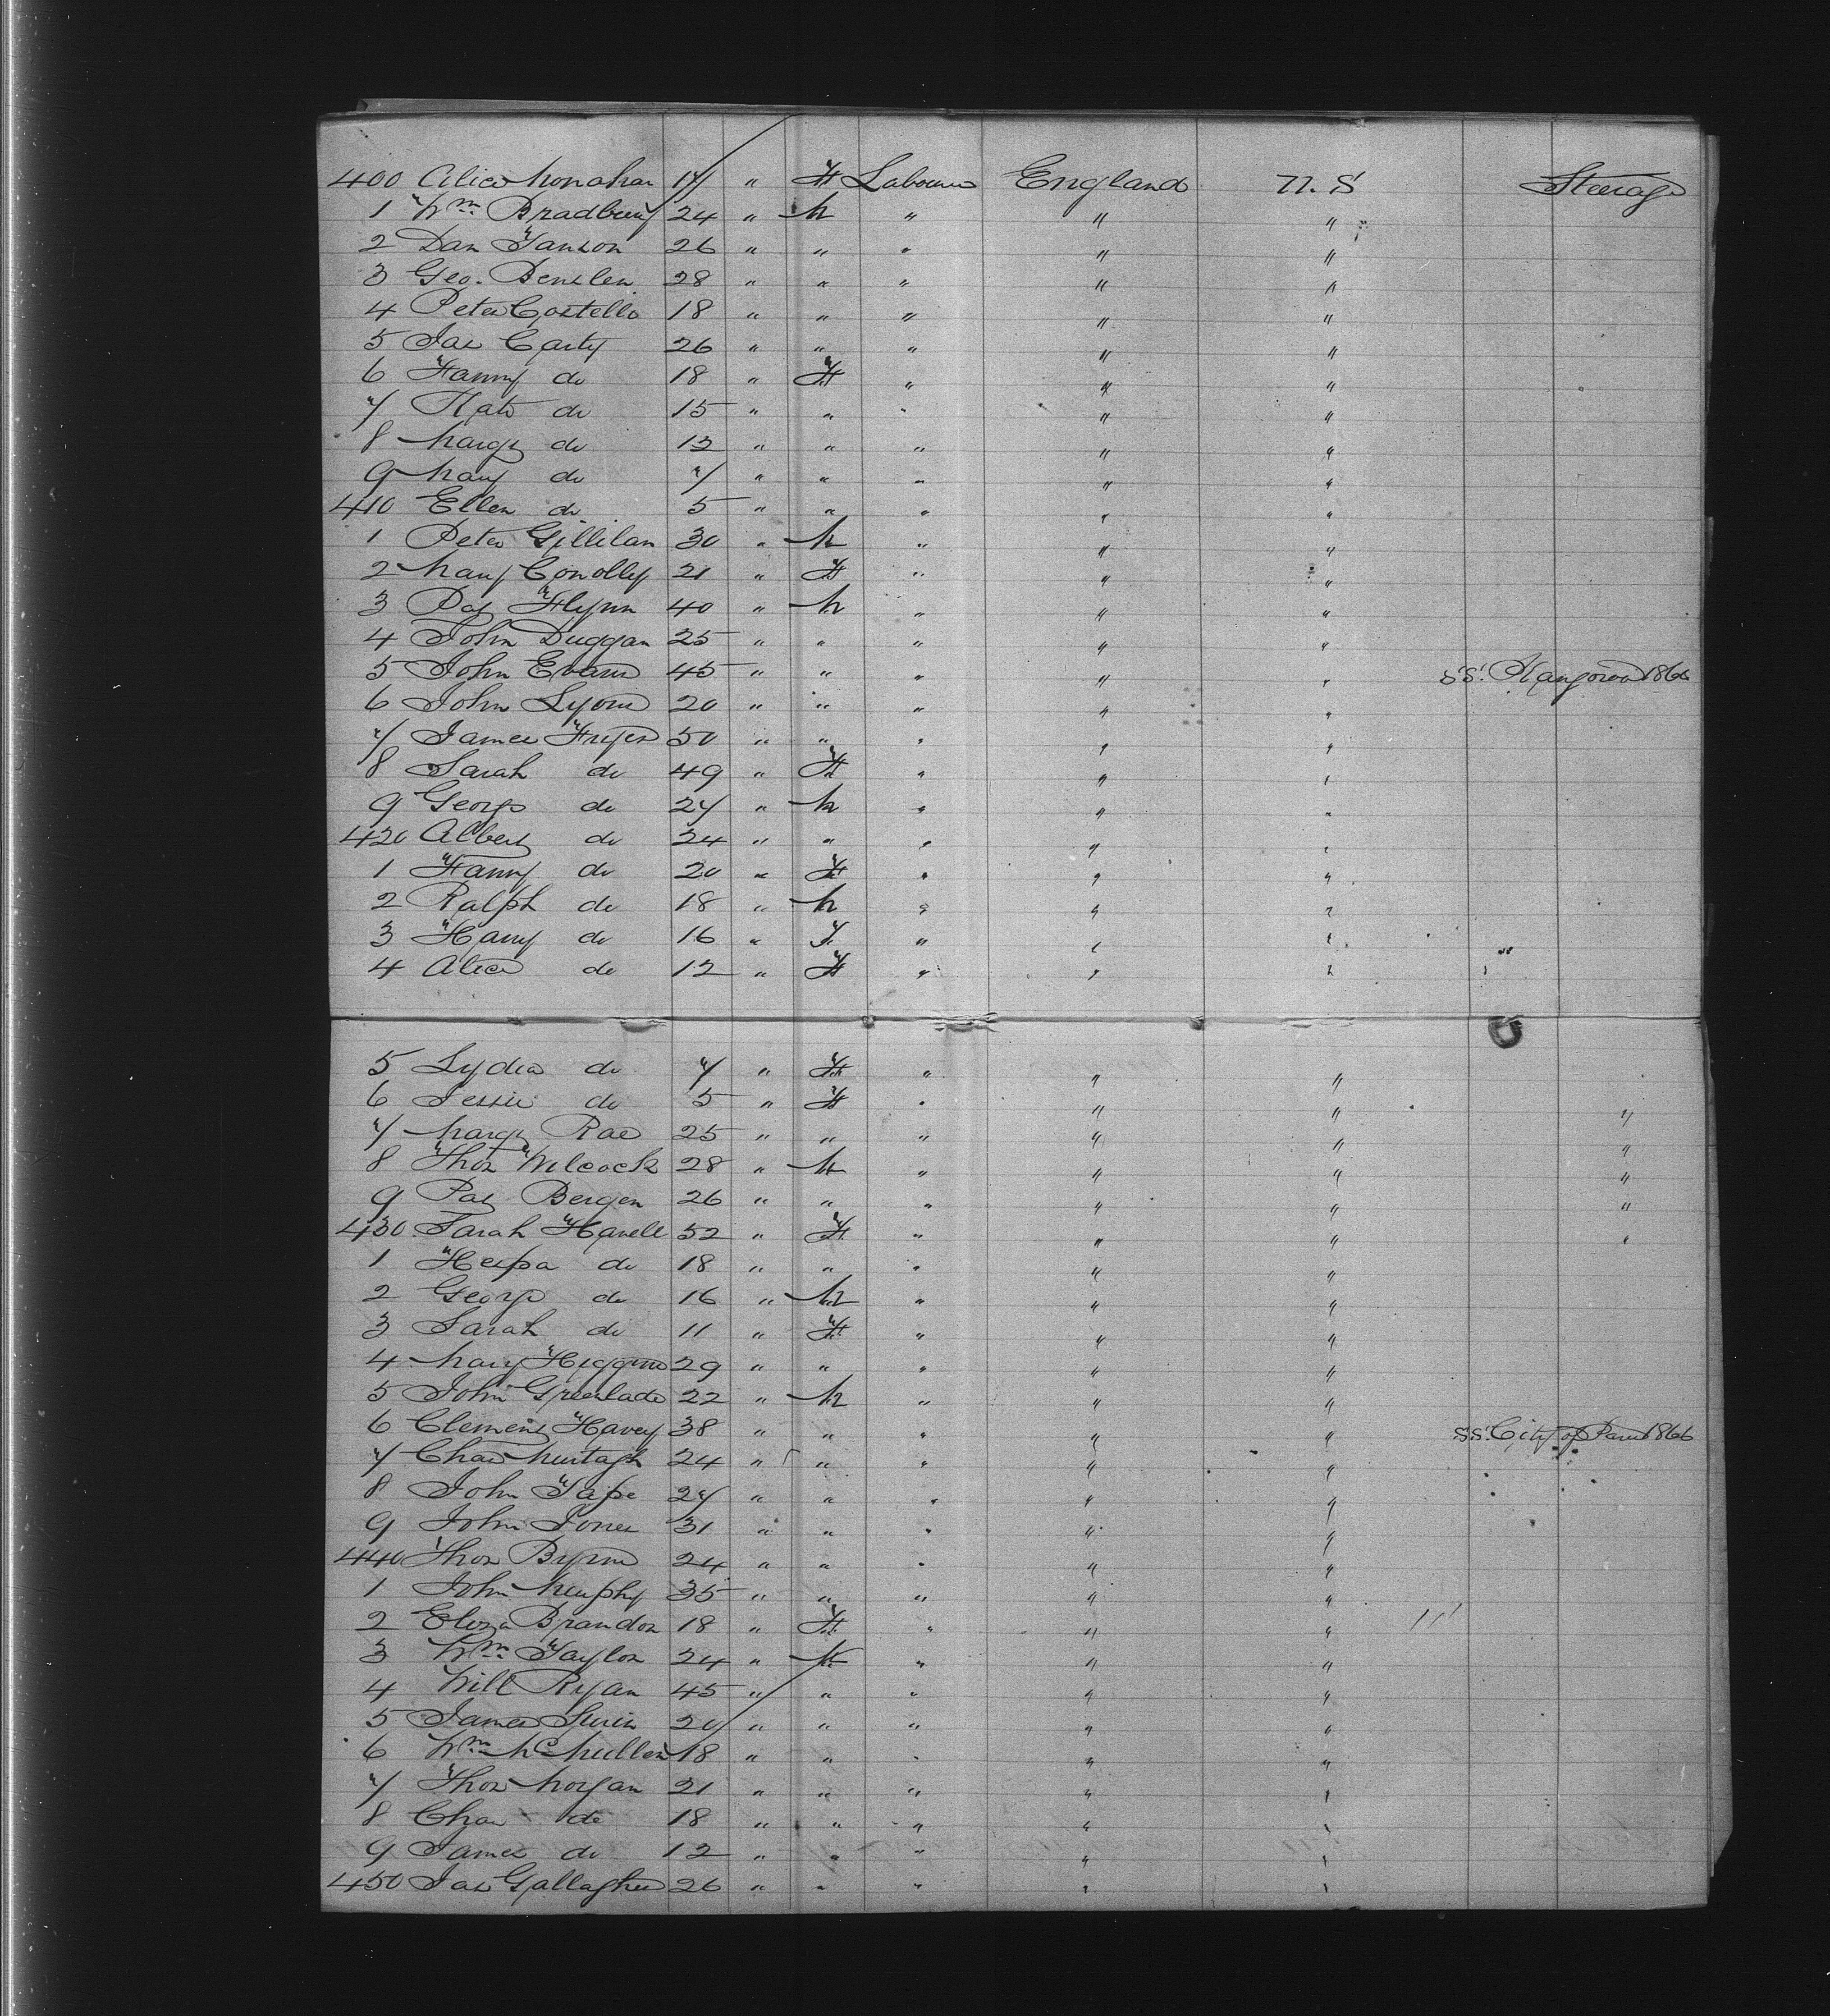 400 Alice Monahan 17 " F Labourer England U.S Steerage
1 Wm Bradbury 24 " M " " "
2 Dan Janson 26 " " " " "
3 Geo. 28 " " " " "
4 Peter Costello 18 " " " " "
5 Jas Carty 26 " " " " "
6 Fanny do 18 " F " " "
7 Kate do 15 " " " " "
8 Margt do 13 " " " " "
9 Mary do 7 " " " " "
410 Ellen do 5 " " " " "
1 Peter Gillilan 30 " M " " "
2 Mary Conolly 21 " F " " "
3 Pat Flynn 40 " M " " "
4 John Duggan 25 " " " " "
5 John Evans 45 " " " " " S.S. 1866
6 John Lyons 20 " " " " "
7 James Fryer 50 " " " " "
8 Sarah do 49 " F " " "
9 George do 27 " M " " "
420 Albert do 24 " " " " "
1 Fanny do 20 " F " " "
2 Ralph do 18 " M " " "
3 Harry do 16 " F " " "
4 Alice do 12 " F " " "
5 Lydia do 7 " F " " "
6 Jessie do 5 " F " " " "
7 Margt Rae 25 " " " " " "
8 Thos Wilcock 28 " M " " " "
9 Pat Bergen 26 " " " " " "
430 Sarah Havell 52 " F " " " "
1 do 18 " " " " "
2 George do 16 " M " " "
3 Sarah do 11 " F " " "
4 Mary Higgins 29 " " " " "
5 John Greenlade 22 " M " " "
6 Clement Havey 38 " " " " " S.S. City of Paris 1866
7 Chas Murtagh 24 " " " " "
8 John Tape 27 " " " " "
9 John Jones 31 " " " " "
440 Thos Byrne 24 " " " " "
1 John Murphy 35 " " " " "
2 Eliza Brandon 18 " F " " "
3 Wm Taylor 24 " M " " "
4 Will Ryan 45 " " " " "
5 James 20 " " " " "
6 Wm McMullen 18 " " " " "
7 Thos Morgan 21 " " " " "
8 Chas do 18 " " " " "
9 James do 12 " " " " "
450 Jas Gallagher 26 " " " " "